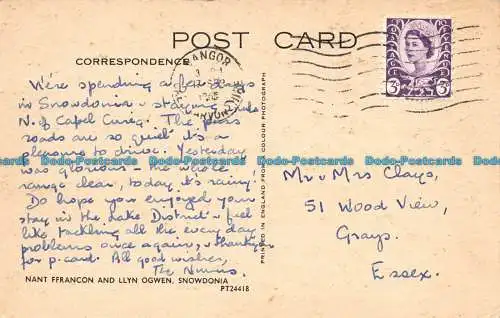 POST CARD
CORRESPONDENCE
BANGOR
3D 3D
We're spending a few days
in Snowdonia - staying
N. of Capel Curig. The pass
roads are so quiet it's a
pleasure to drive. Yesterday
was glorious - the whole
range clear, today it's rainy.
Do hope you enjoyed your
stay in the Lake District & feel
like tackling all the everyday
problems once again, & thanks
for p-card. All good wishes,
The
NANT FFRANCON AND LLYN OGWEN, SNOWDONIA
PT24418
PRINTED IN ENGLAND FROM A COLOUR PHOTOGRAPH
Mr & Mrs Clays,
51 Wood View,
Grays.
Essex.
Postcards Postcards Postcards Postcards Postcards Postcards